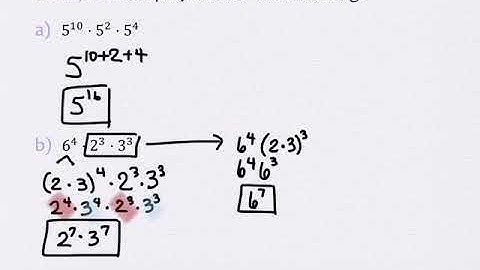 a) 5^10 · 5^2 · 5^4
5^10+2+4
5^16
b) 6^4 · 2^3 · 3^3
6^4 (2·3)^3
(2·3)^4 · 2^3 · 3^3
6^4 6^3
2^4 · 3^4 · 2^3 · 3^3
6^7
2^7 · 3^7